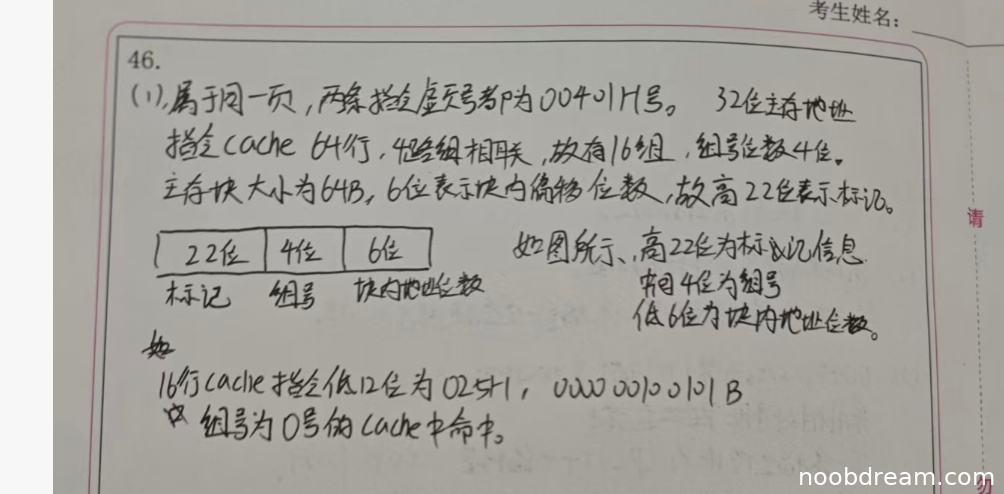 考生姓名:
46.
(1),属于同一页,两条指令虚页号都为00401H号。 32位主存地址
指令Cache 64行,4路组相联,故有16组,组号位数4位。
主存块大小为64B,6位表示块内偏移位数,故高22位表示标记。
22位 4位 6位
标记 组号 块内地址位数
如图所示、高22位为标记信息
中间4位为组号
低6位为块内地址位数。
请
16行Cache指令低12位为025H, 0000 0010 0101 B
组号为0号的Cache中命中。
noobdream.com
勿